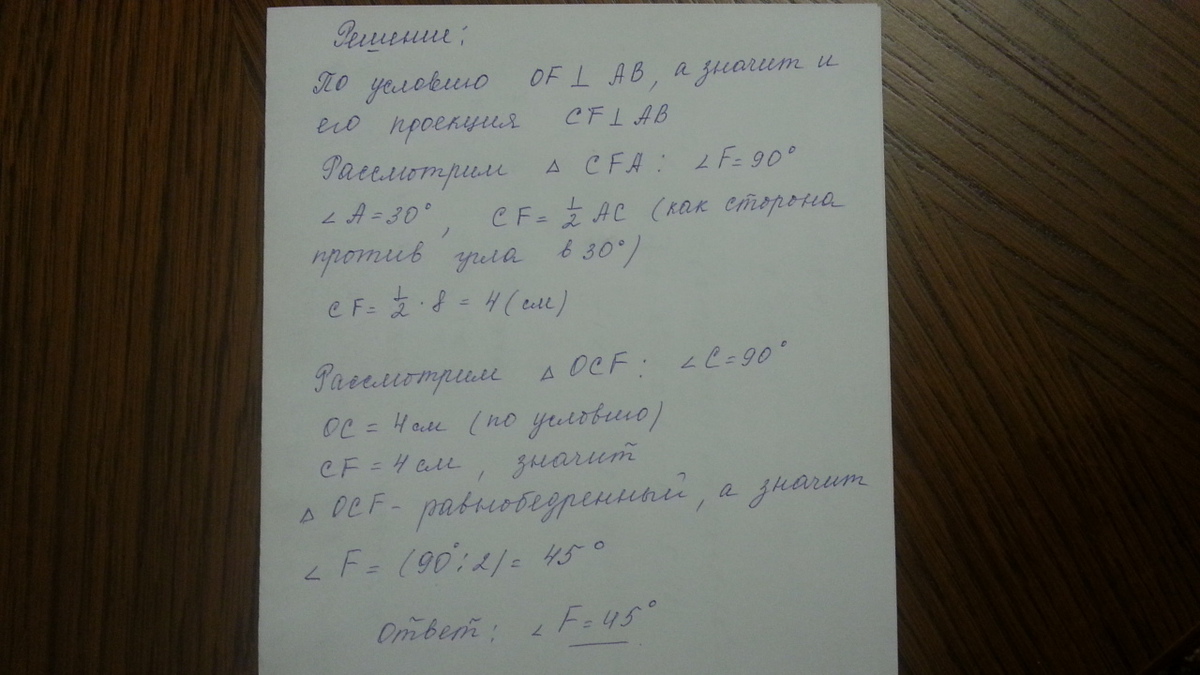 Решение:
По условию OF ⊥ AB, а значит и
его проекция CF ⊥ AB
Рассмотрим △ CFA: ∠F = 90°
∠A = 30°, CF = 1/2 AC (как сторона
против угла в 30°)
CF = 1/2 · 8 = 4 (см)
Рассмотрим △ OCF: ∠C = 90°
OC = 4 см (по условию)
CF = 4 см, значит
△ OCF - равнобедренный, а значит
∠ F = (90° : 2) = 45°
Ответ: ∠ F = 45°